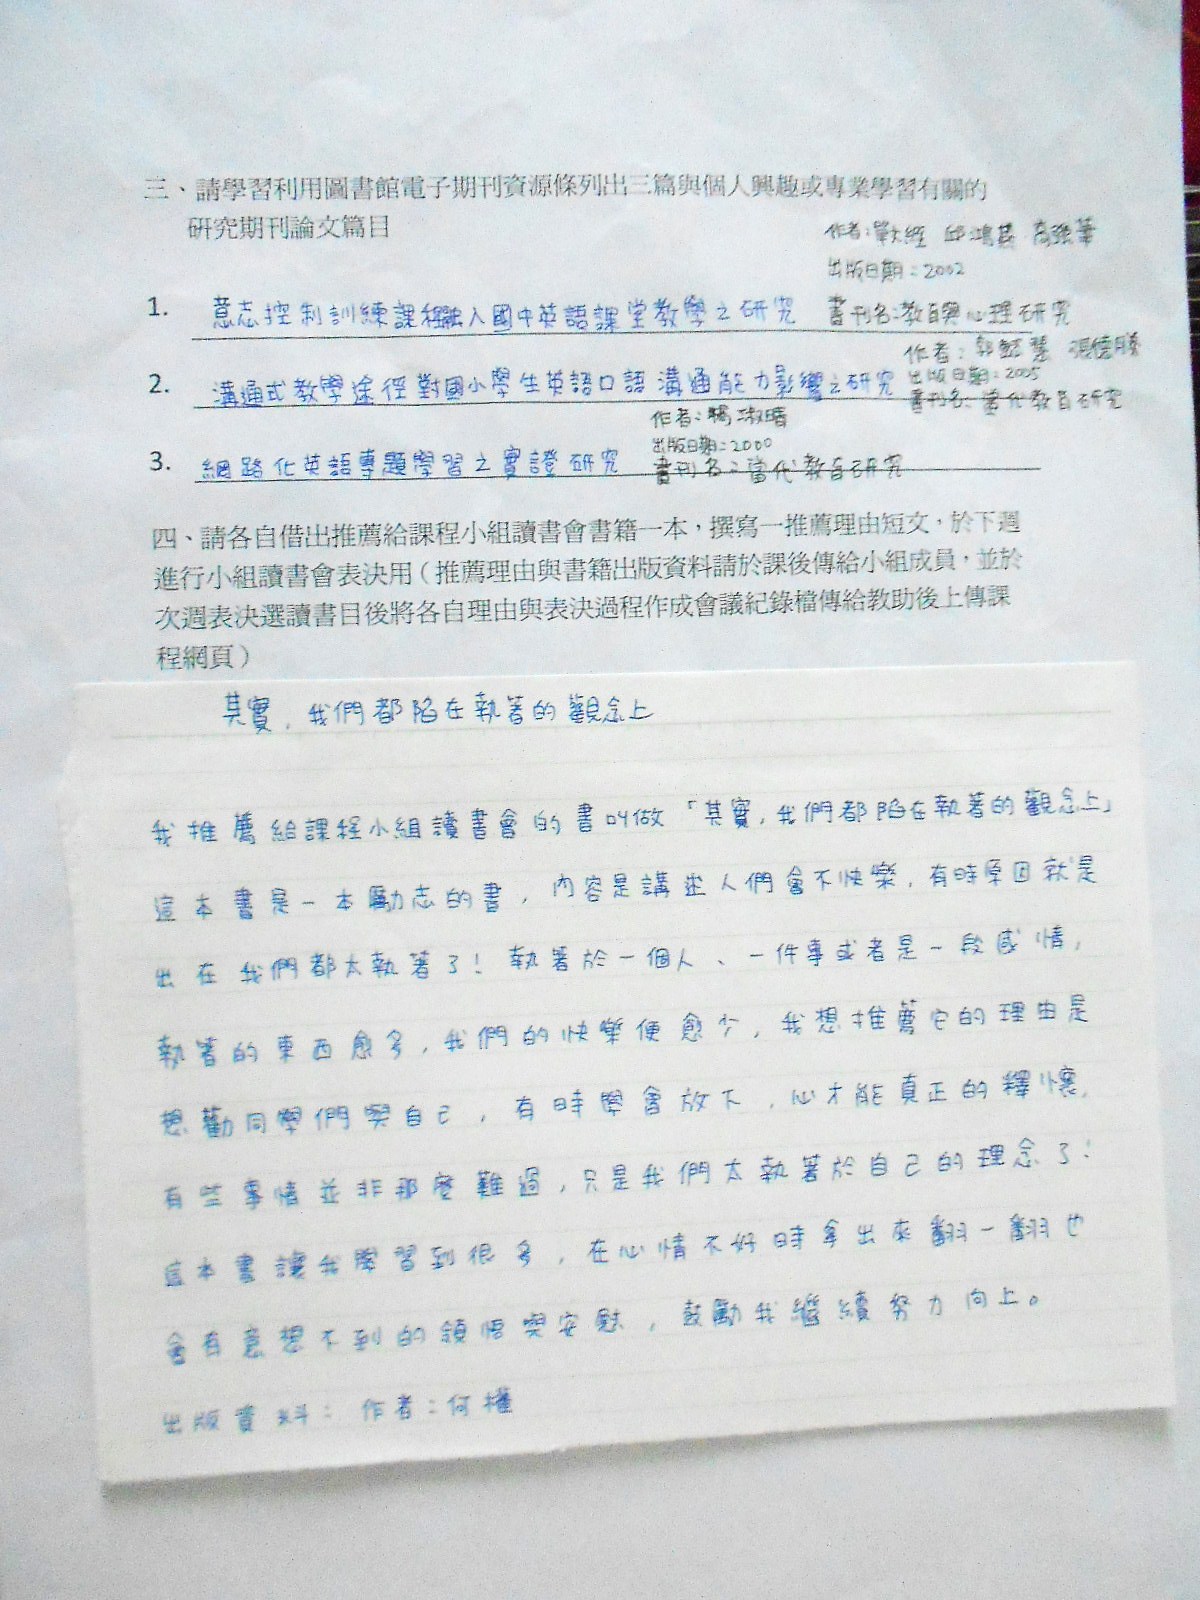 三、請學習利用圖書館電子期刊資源條列出三篇與個人興趣或專業學習有關的
研究期刊論文篇目
作者: 邱鴻 
出版日期：2002
1. 意志控制訓練課程融入國中英語課堂教學之研究 書刊名:教育與心理研究
作者: 郭 慧 張德勝
2. 溝通式教學途徑對國小學生英語口語溝通能力影響之研究 出版日期：2005
書刊名: 當代教育研究
作者:楊淑晴
出版日期:2000
3. 網路化英語專題學習之實證研究 書刊名：當代教育研究
四、請各自借出推薦給課程小組讀書會書籍一本，撰寫一推薦理由短文，於下週
進行小組讀書會表決用（推薦理由與書籍出版資料請於課後傳給小組成員，並於
次週表決選讀書目後將各自理由與表決過程作成會議紀錄檔傳給教助後上傳課
程網頁）
其實，我們都陷在執著的觀念上
我推薦給課程小組讀書會的書叫做「其實，我們都陷在執著的觀念上」
這本書是一本勵志的書，內容是講述人們會不快樂，有時原因就是
出在我們都太執著了！執著於一個人、一件事或者是一段感情，
執著的東西愈多，我們的快樂便愈少，我想推薦它的理由是
想勸同學們與自己，有時學會放下，心才能真正的釋懷，
有些事情並非那麼難過，只是我們太執著於自己的理念了！
這本書讓我學習到很多，在心情不好時拿出來翻一翻也
會有意想不到的領悟與安慰，鼓勵我繼續努力向上。
出版資料： 作者：何權